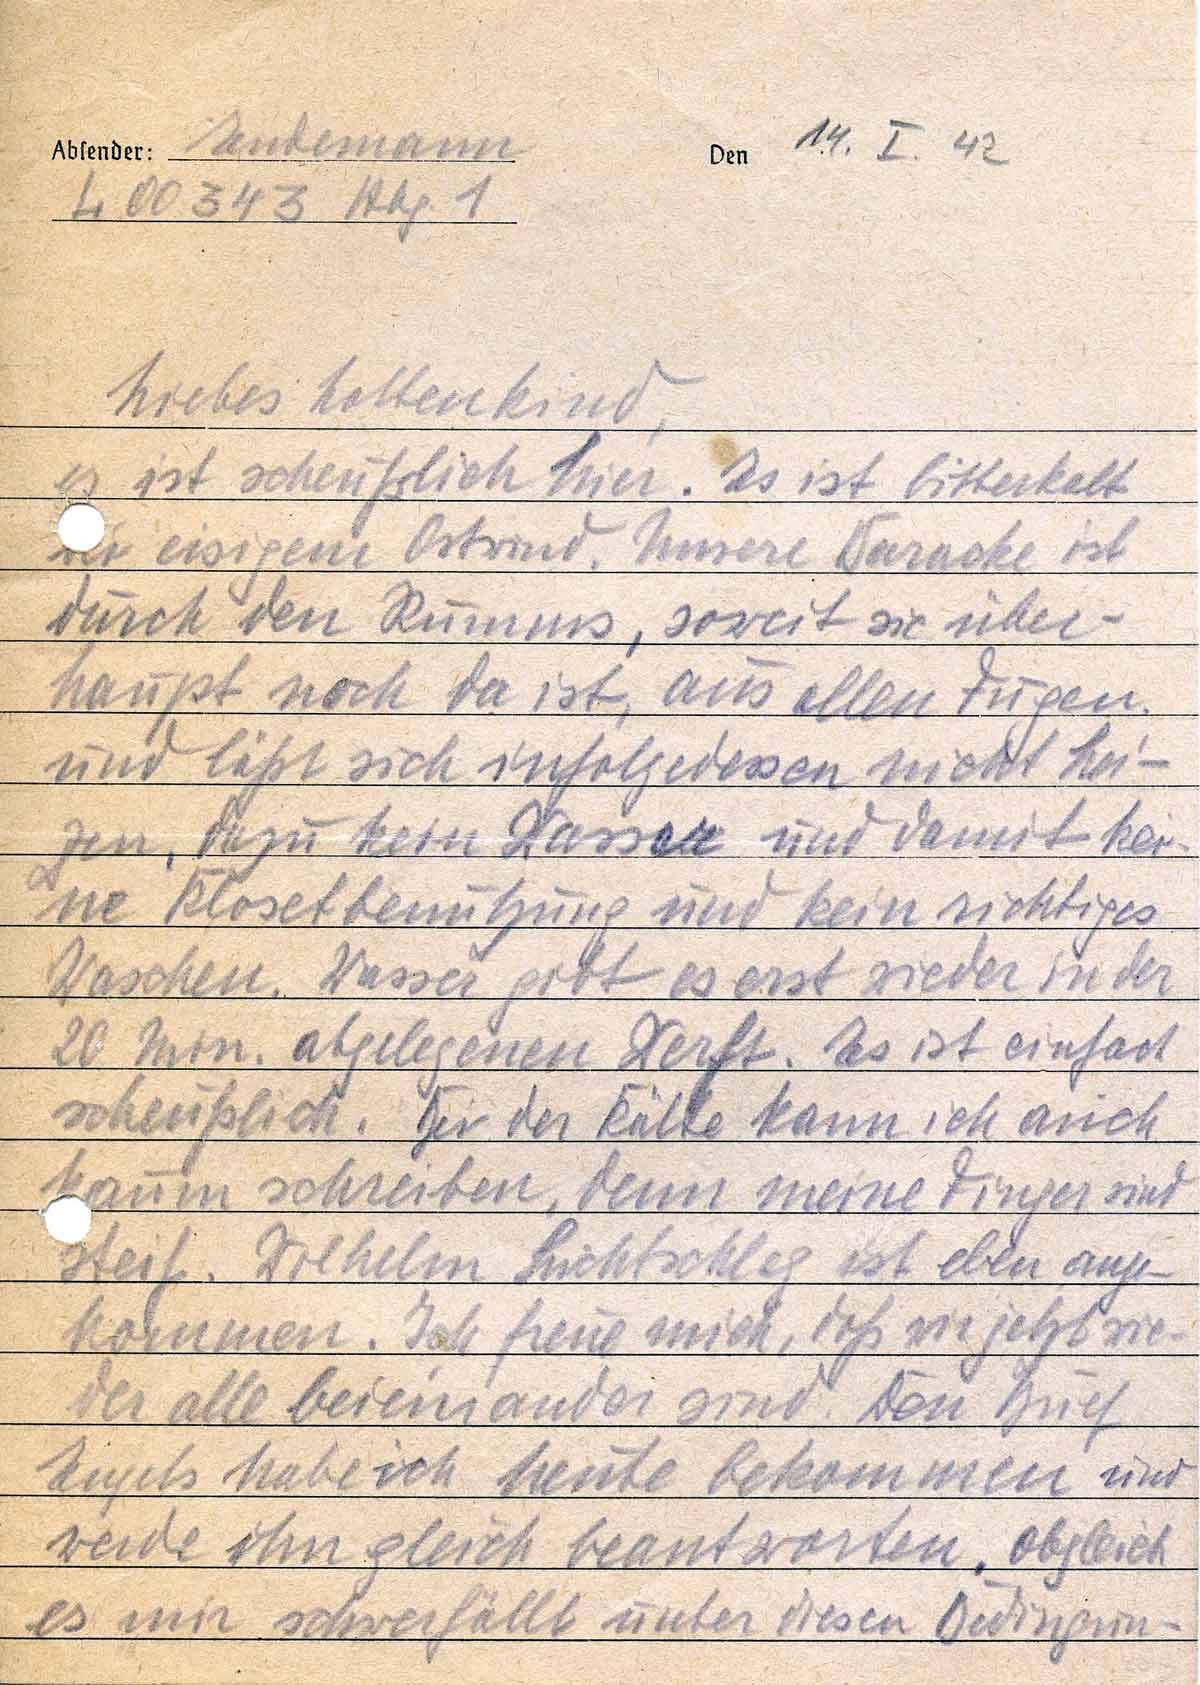 Absender: Endemann
Den 14. I. 42
L 00343 Abg. 1
Liebes Lottenkind,
es ist scheußlich hier. Es ist bitterkalt
bei eisigem Ostwind. Unsere Baracke ist
durch den Rumms, soweit sie über-
haupt noch da ist, aus allen Fugen.
und läßt sich infolgedessen nicht hei-
zen, dazu kein Wasser und damit kei-
ne Klosetbenutzung und kein richtiges
Waschen. Wasser gibt es erst wieder in der
20 Min. abgelegenen Werft. Es ist einfach
scheußlich. Bei der Kälte kann ich auch
kaum schreiben, denn meine Finger sind
steif. Wilhelm Lichtschlag ist eben ange-
kommen. Ich freue mich, daß wir jetzt wie-
der alle beieinander sind. Den Brief
Engels habe ich heute bekommen und
werde ihn gleich beantworten, obgleich
es mir schwerfällt unter diesen Bedingun-